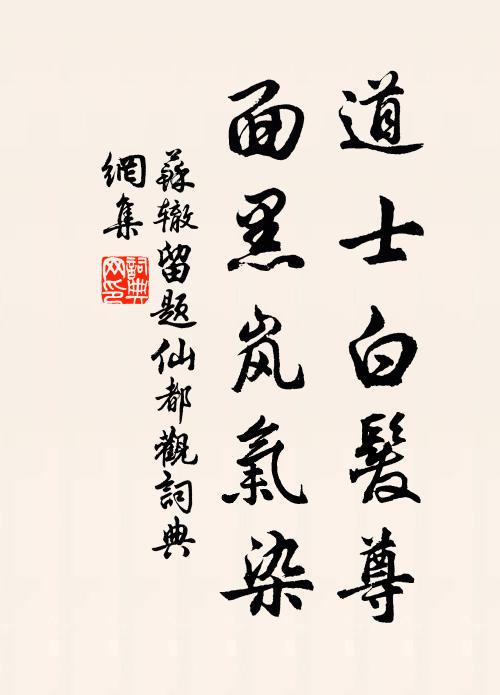 道士白髮尊
面黑岚氣染
蘇辙留題仙都觀詞典
網集
詞典
网印